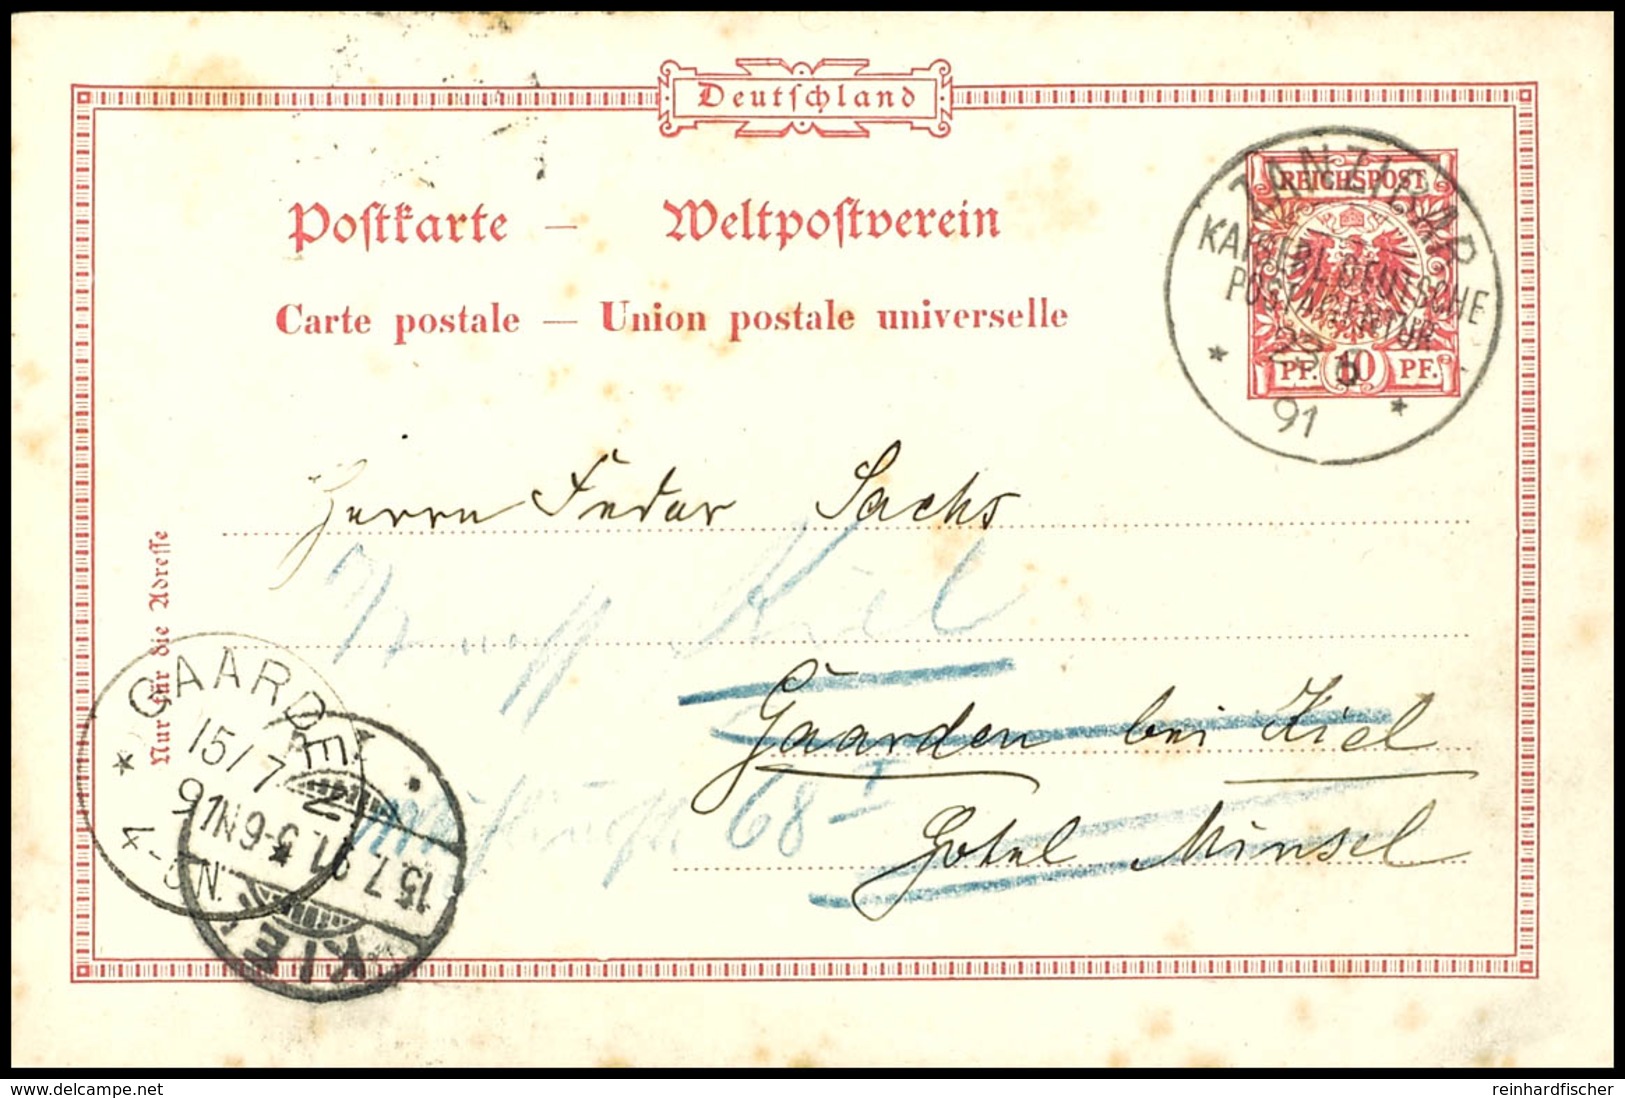 Deutschland
Postkarte — Weltpostverein
Carte postale — Union postale universelle
REICHSPOST
PF. 10 PF.
ZANZIBAR
KAISERL. DEUTSCHE
POSTAGENTUR
91
Herrn Fedor Sachs
Kiel
Gaarden bei Kiel
68 I
Hotel Münsel
Nur für die Adresse
GAARDEN
15/7
91 N 5-6 N
KIEL
15.7.91. 5-6N
delcampe.net
reinhardfischer